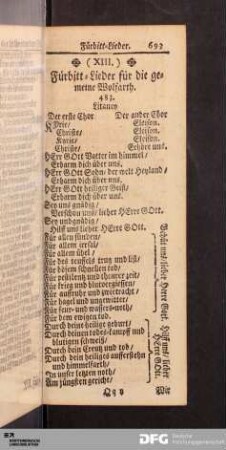 Fürbitt-Lieder. 693
(XIII.)
Fürbitt-Lieder für die ge-
meine Wolfarth.
483.
Litaney
Der erste Chor Der ander Chor
KYrie/ Eleison.
Christe/ Eleison.
Kyrie/ Eleison.
Christe/ Erhöre uns.
HErr GOtt Vatter im himmel/
Erbarm dich über uns.
HErr GOtt Sohn/ der welt Heyland/
Erbarm dich über uns.
HErr GOtt heiliger Geist/
Erbarm dich über uns.
Sey uns gnädig/
Verschon uns/ lieber HErre GOtt.
Sey uns gnädig/
Hilff uns lieber HErre GOtt.
Für allen sünden/
Für allem irrsal/
Für allem übel/
Für des teuffels trug und list/
Für bösem schnellen tod/
Für pestilentz und theurer zeit/
Für krieg und blutvergiessen/
Für auffruhr und zweytracht/
Für hagel und ungewitter/
Für feur- und wassers-noth/
Für dem ewigen tod.
Behüt uns/ lieber Herre Gott.
Durch deine heilige geburt/
Durch deinen todes-kampff und
blutigen schweiß/
Durch dein Creutz und tod/
Durch dein heiliges aufferstehn
und himmelfarth/
In unser letzten noth/
Am jüngsten gericht/
Hilff uns/ lieber
HErre GOtt.
Wir